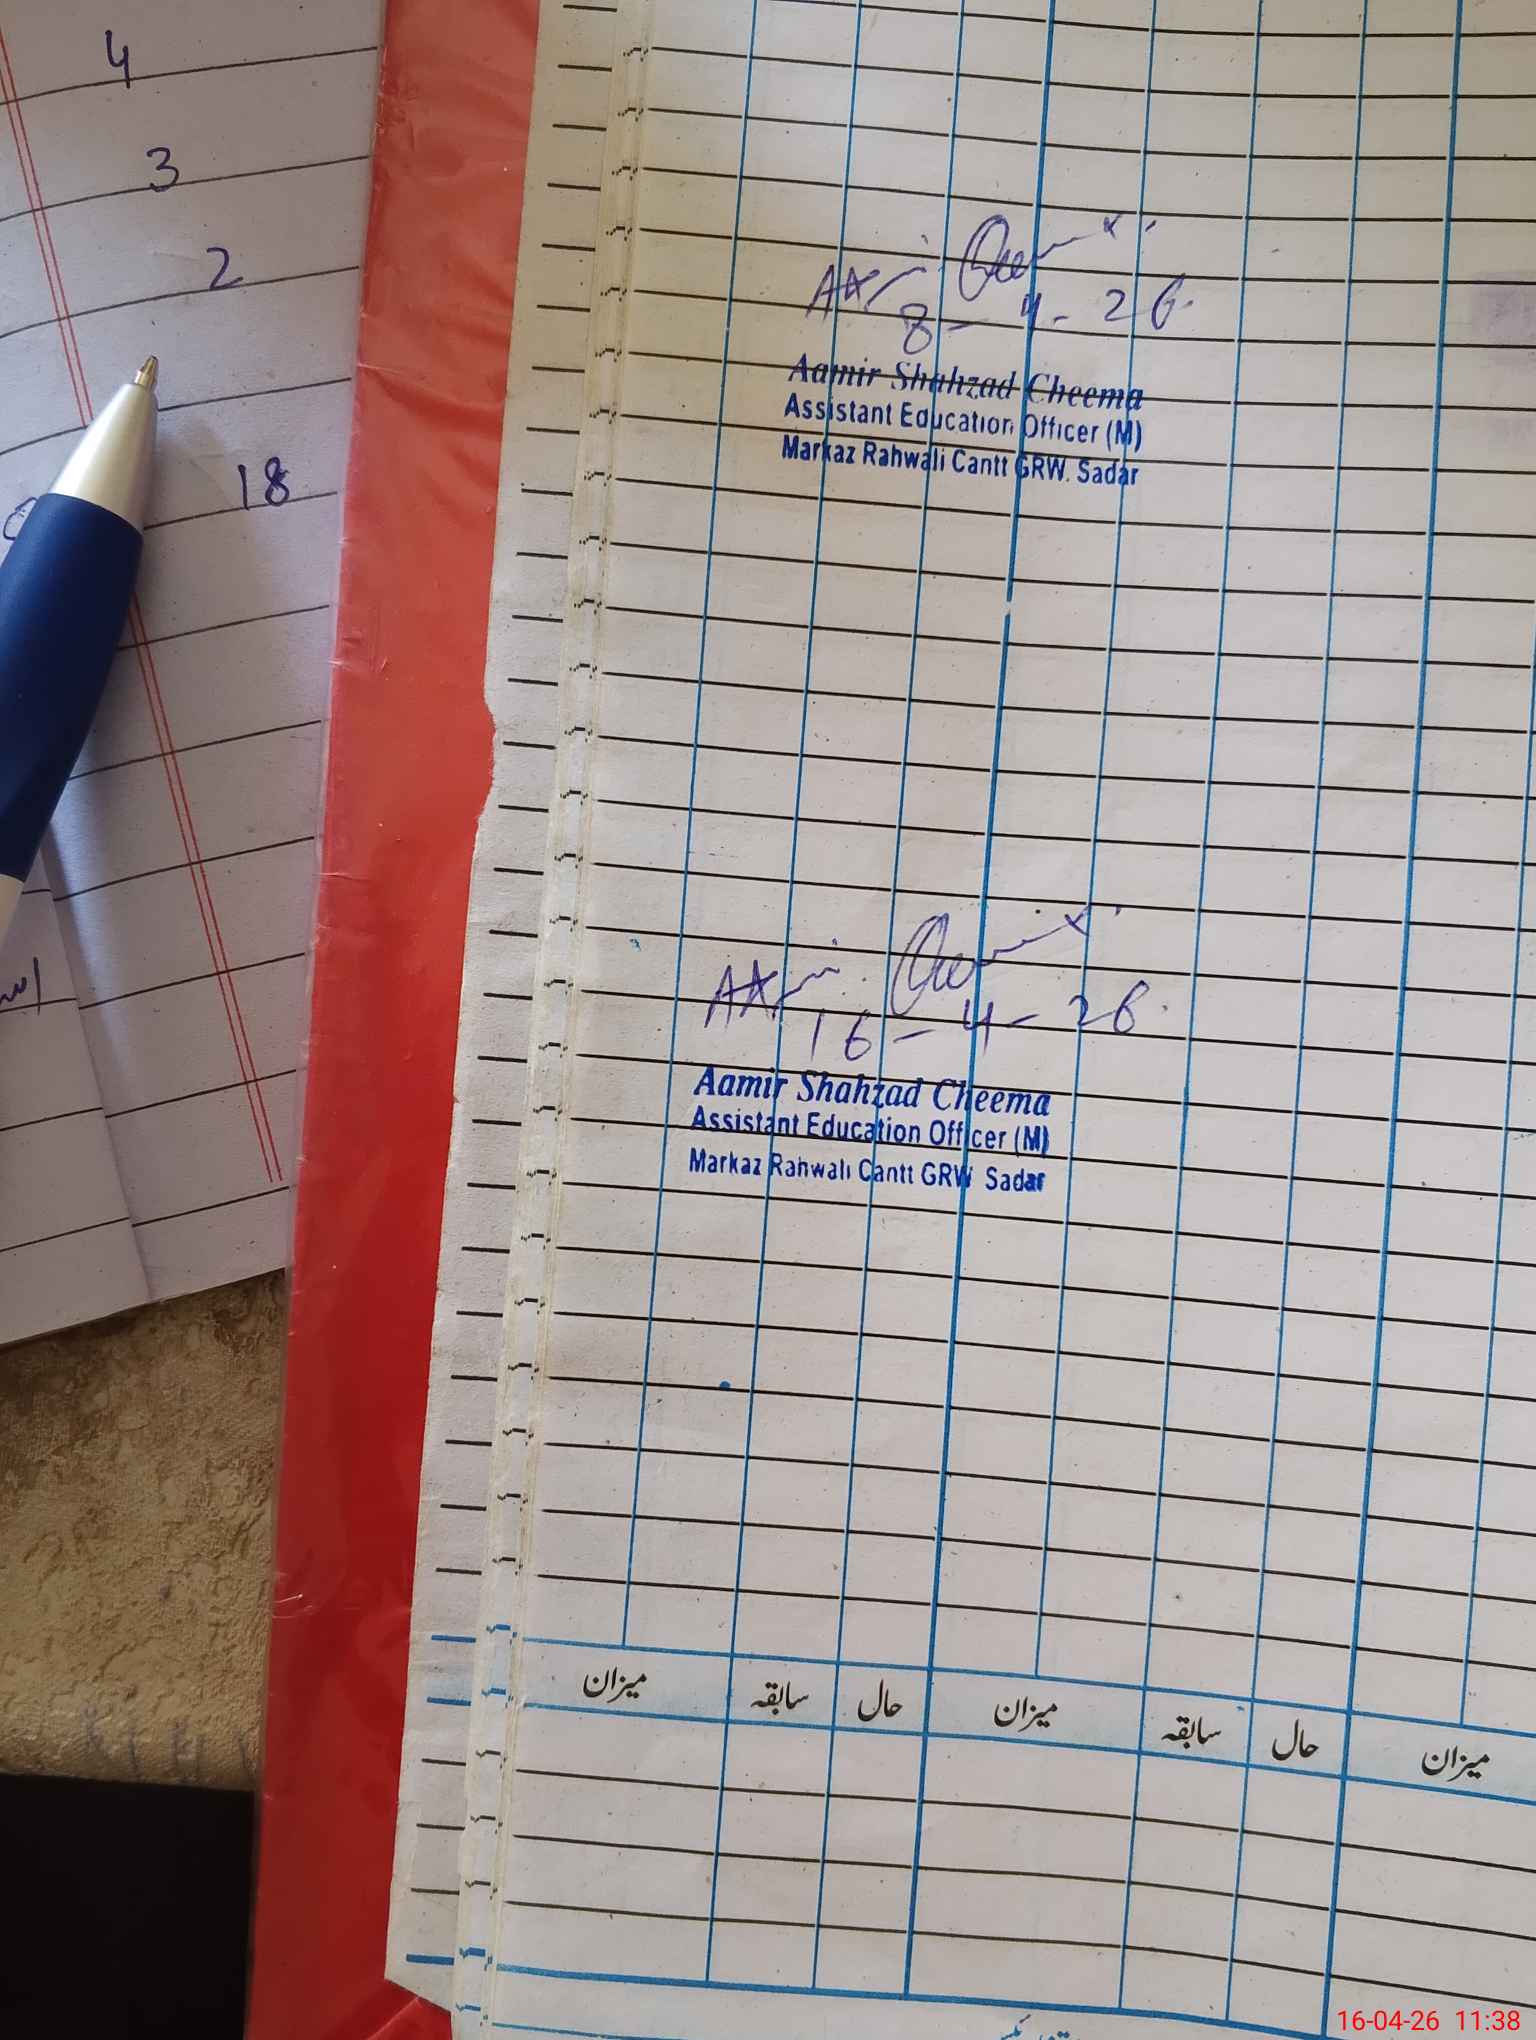 4
3
2
18
8-4-26
Aamir Shahzad Cheema
Assistant Education Officer (M)
Markaz Rahwali Cantt GRW. Sadar
16-4-26
Aamir Shahzad Cheema
Assistant Education Officer (M)
Markaz Rahwali Cantt GRW Sadar
میزان حال سابقہ میزان حال سابقہ میزان
16-04-26 11:38